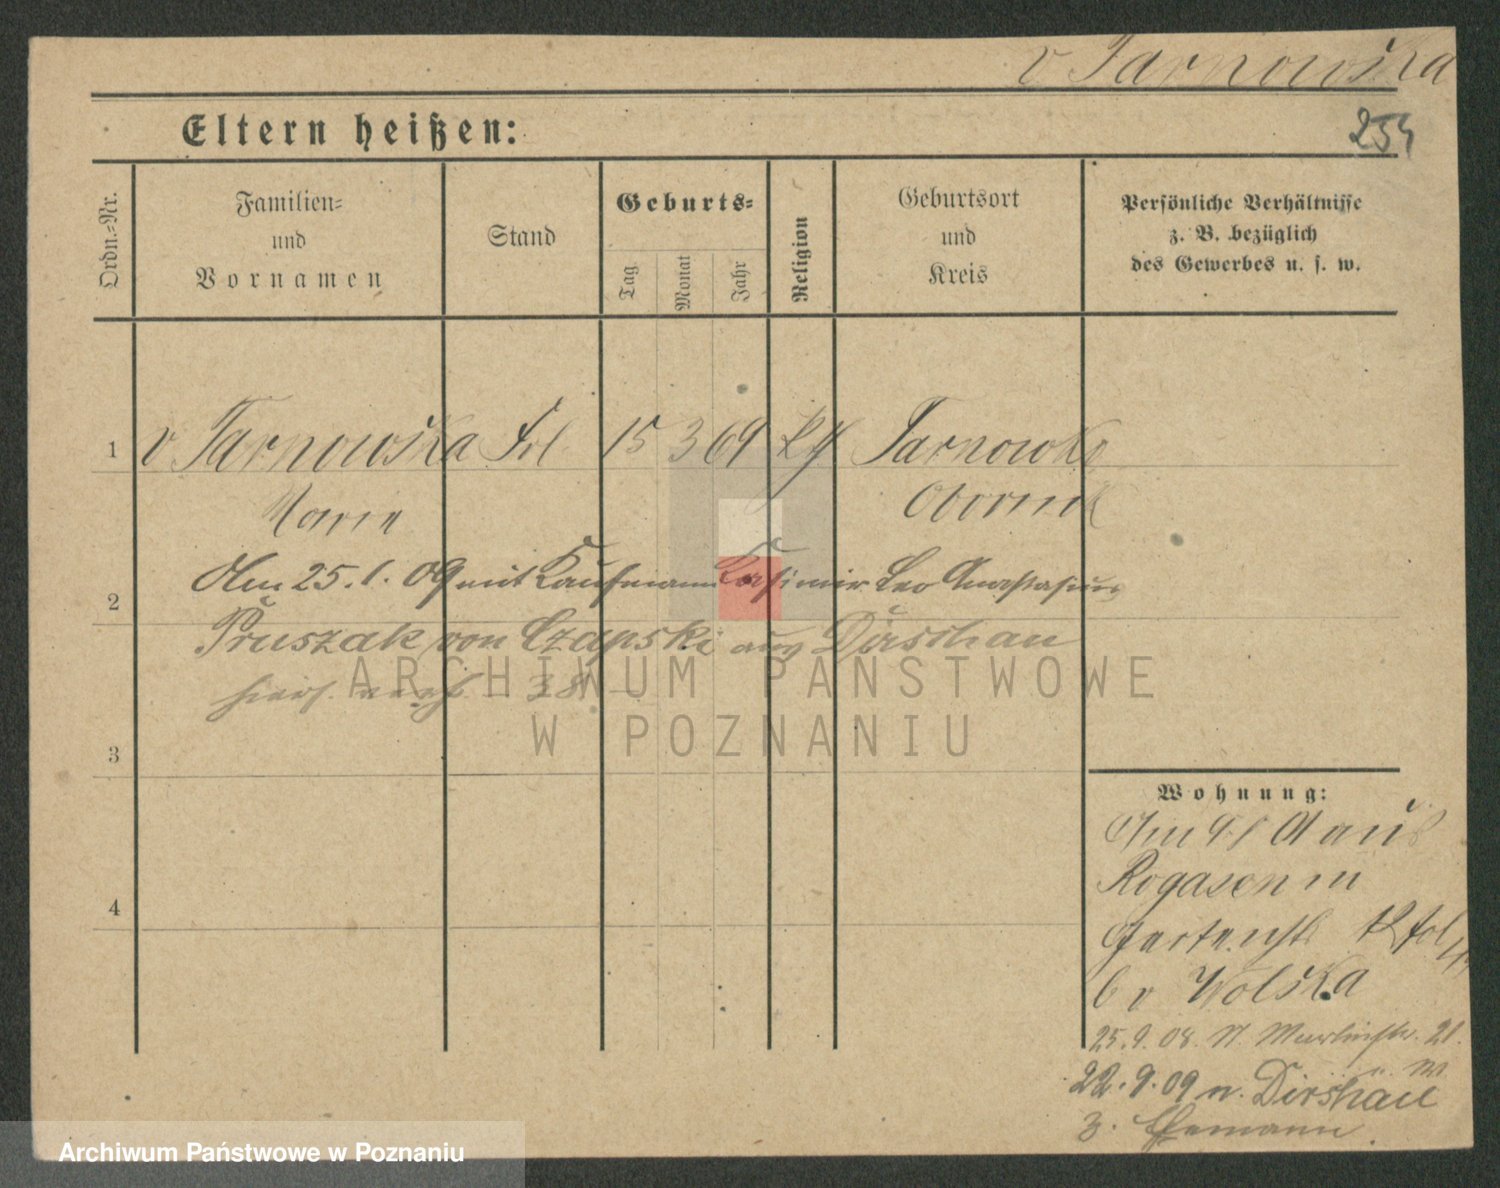 v Tarnowska
254
Eltern heißen:
Ordn.-Nr.
Familien-
und
Vornamen
Stand
Geburts-
Tag
Monat
Jahr
Religion
Geburtsort
und
Kreis
Persönliche Verhältnisse
z. B. bezüglich
des Gewerbes u. s. w.
1 v Tarnowska Frl. 15 3 69 Tarnowko
Marie Obornik
Am 25.1.09 mit Kaufmann Kasimir Leo Anastasius
2
Pruszak von Czapski aus Dirschau
hiers. 38.
3
Wohnung:
aus
Rogasen in
4
Gartenstr 12
b v Wolska
25.9.08. N. Martinstr. 21.
22.9.09 n. Dirschau
z. Ehemann.
ARCHIWUM PAŃSTWOWE
W POZNANIU
Archiwum Państwowe w Poznaniu